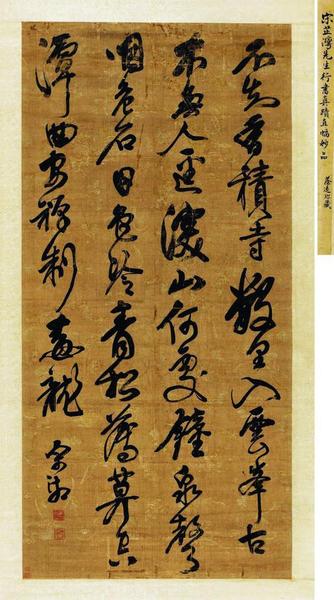 宋芷灣先生行書真蹟直幅妙品
不知香積寺數里入雲峯古
木無人逕深山何處鐘泉聲
咽危石日色冷青松薄莫空
潭曲安禪制毒龍
宋湘